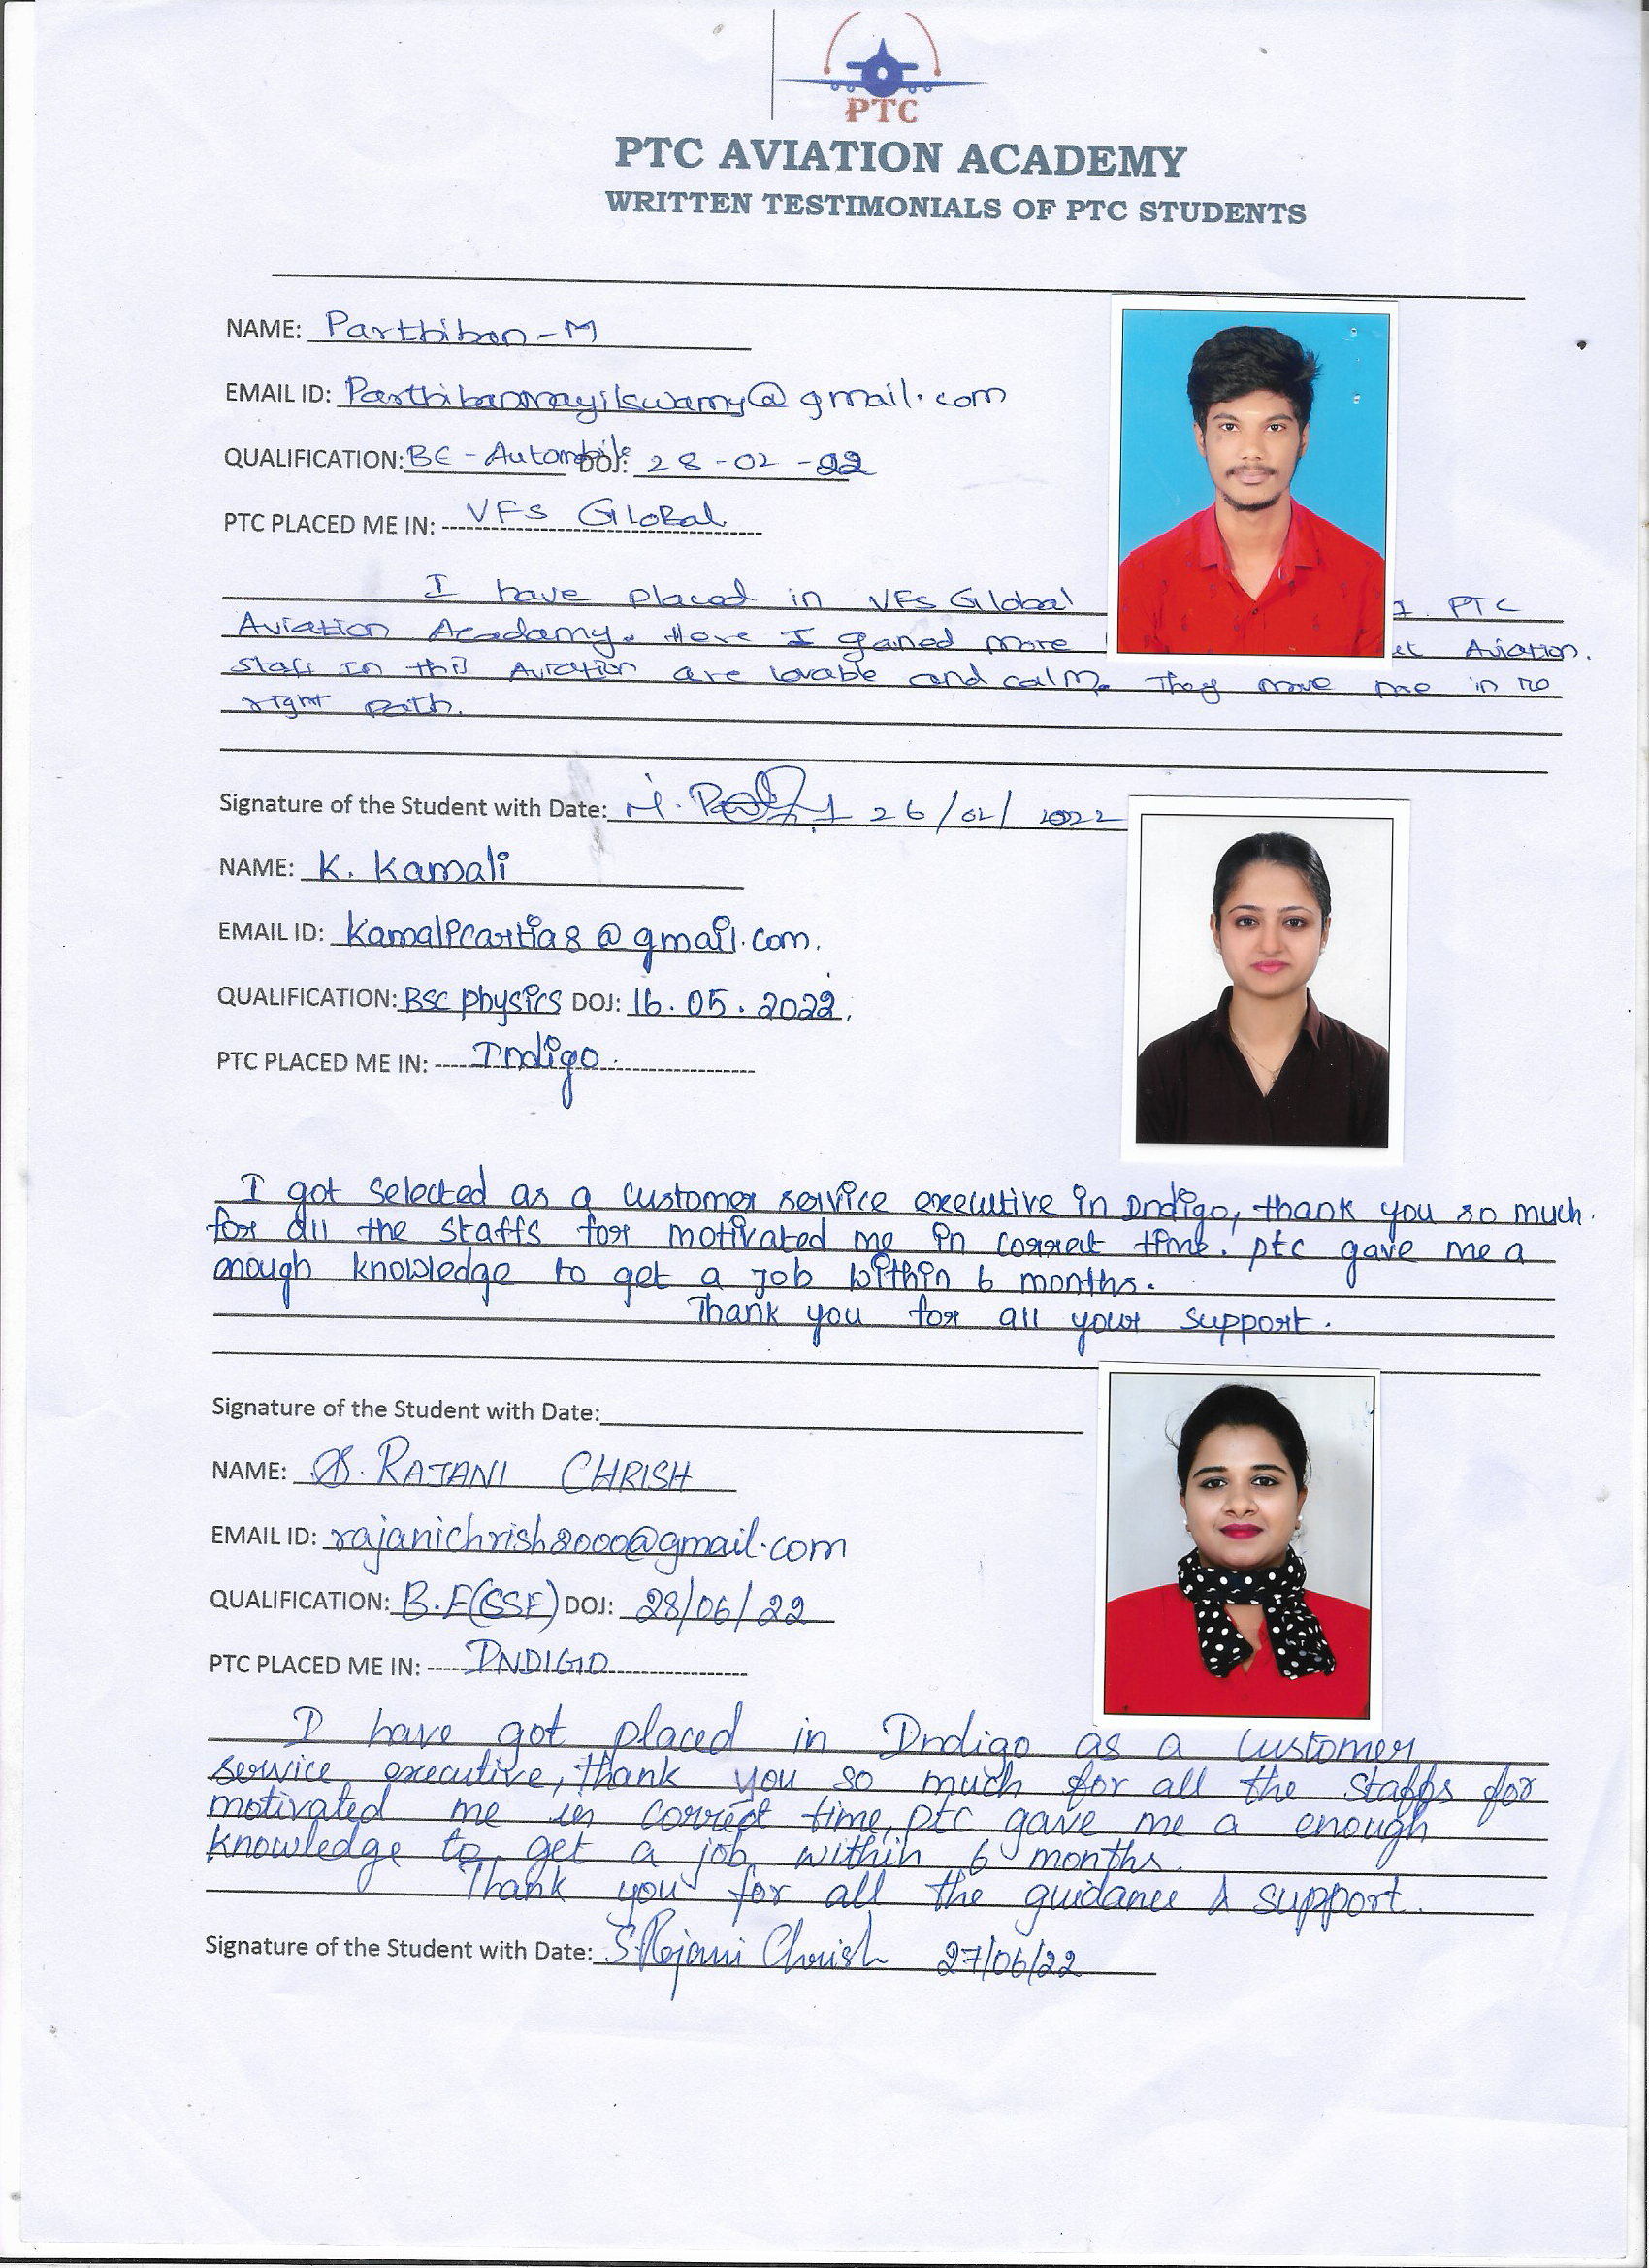 PTC
PTC AVIATION ACADEMY
WRITTEN TESTIMONIALS OF PTC STUDENTS
NAME: Parthiban-M
EMAIL ID: Parthibanmayilswamy@gmail.com
QUALIFICATION: BE - Automobile DOJ: 28-02-22
PTC PLACED ME IN: VFS Global
I have placed in VFS Global PTC
Aviation Academy. Here I gained more Aviation.
Staff in this Aviation are lovable and calm. They move me in
right path.
Signature of the Student with Date: 26/02/2022
NAME: K. Kamali
EMAIL ID: @gmail.com.
QUALIFICATION: BSC physics DOJ: 16.05.2022,
PTC PLACED ME IN: Indigo
I got selected as a customer service executive in Indigo, thank you so much.
for all the staffs for motivated me in correct time. ptc gave me a
enough knowledge to get a job within 6 months.
Thank you for all your support.
Signature of the Student with Date:
NAME: S. RAJANI CHRISH
EMAIL ID: rajanichrish2000@gmail.com
QUALIFICATION: B.E(CSE) DOJ: 28/06/22
PTC PLACED ME IN: INDIGO
I have got placed in Indigo as a customer
service executive, thank you so much for all the staffs for
motivated me in correct time, ptc gave me a enough
knowledge to get a job within 6 months.
Thank you for all the guidance & support.
Signature of the Student with Date: S.Rajani Chrish 27/06/22